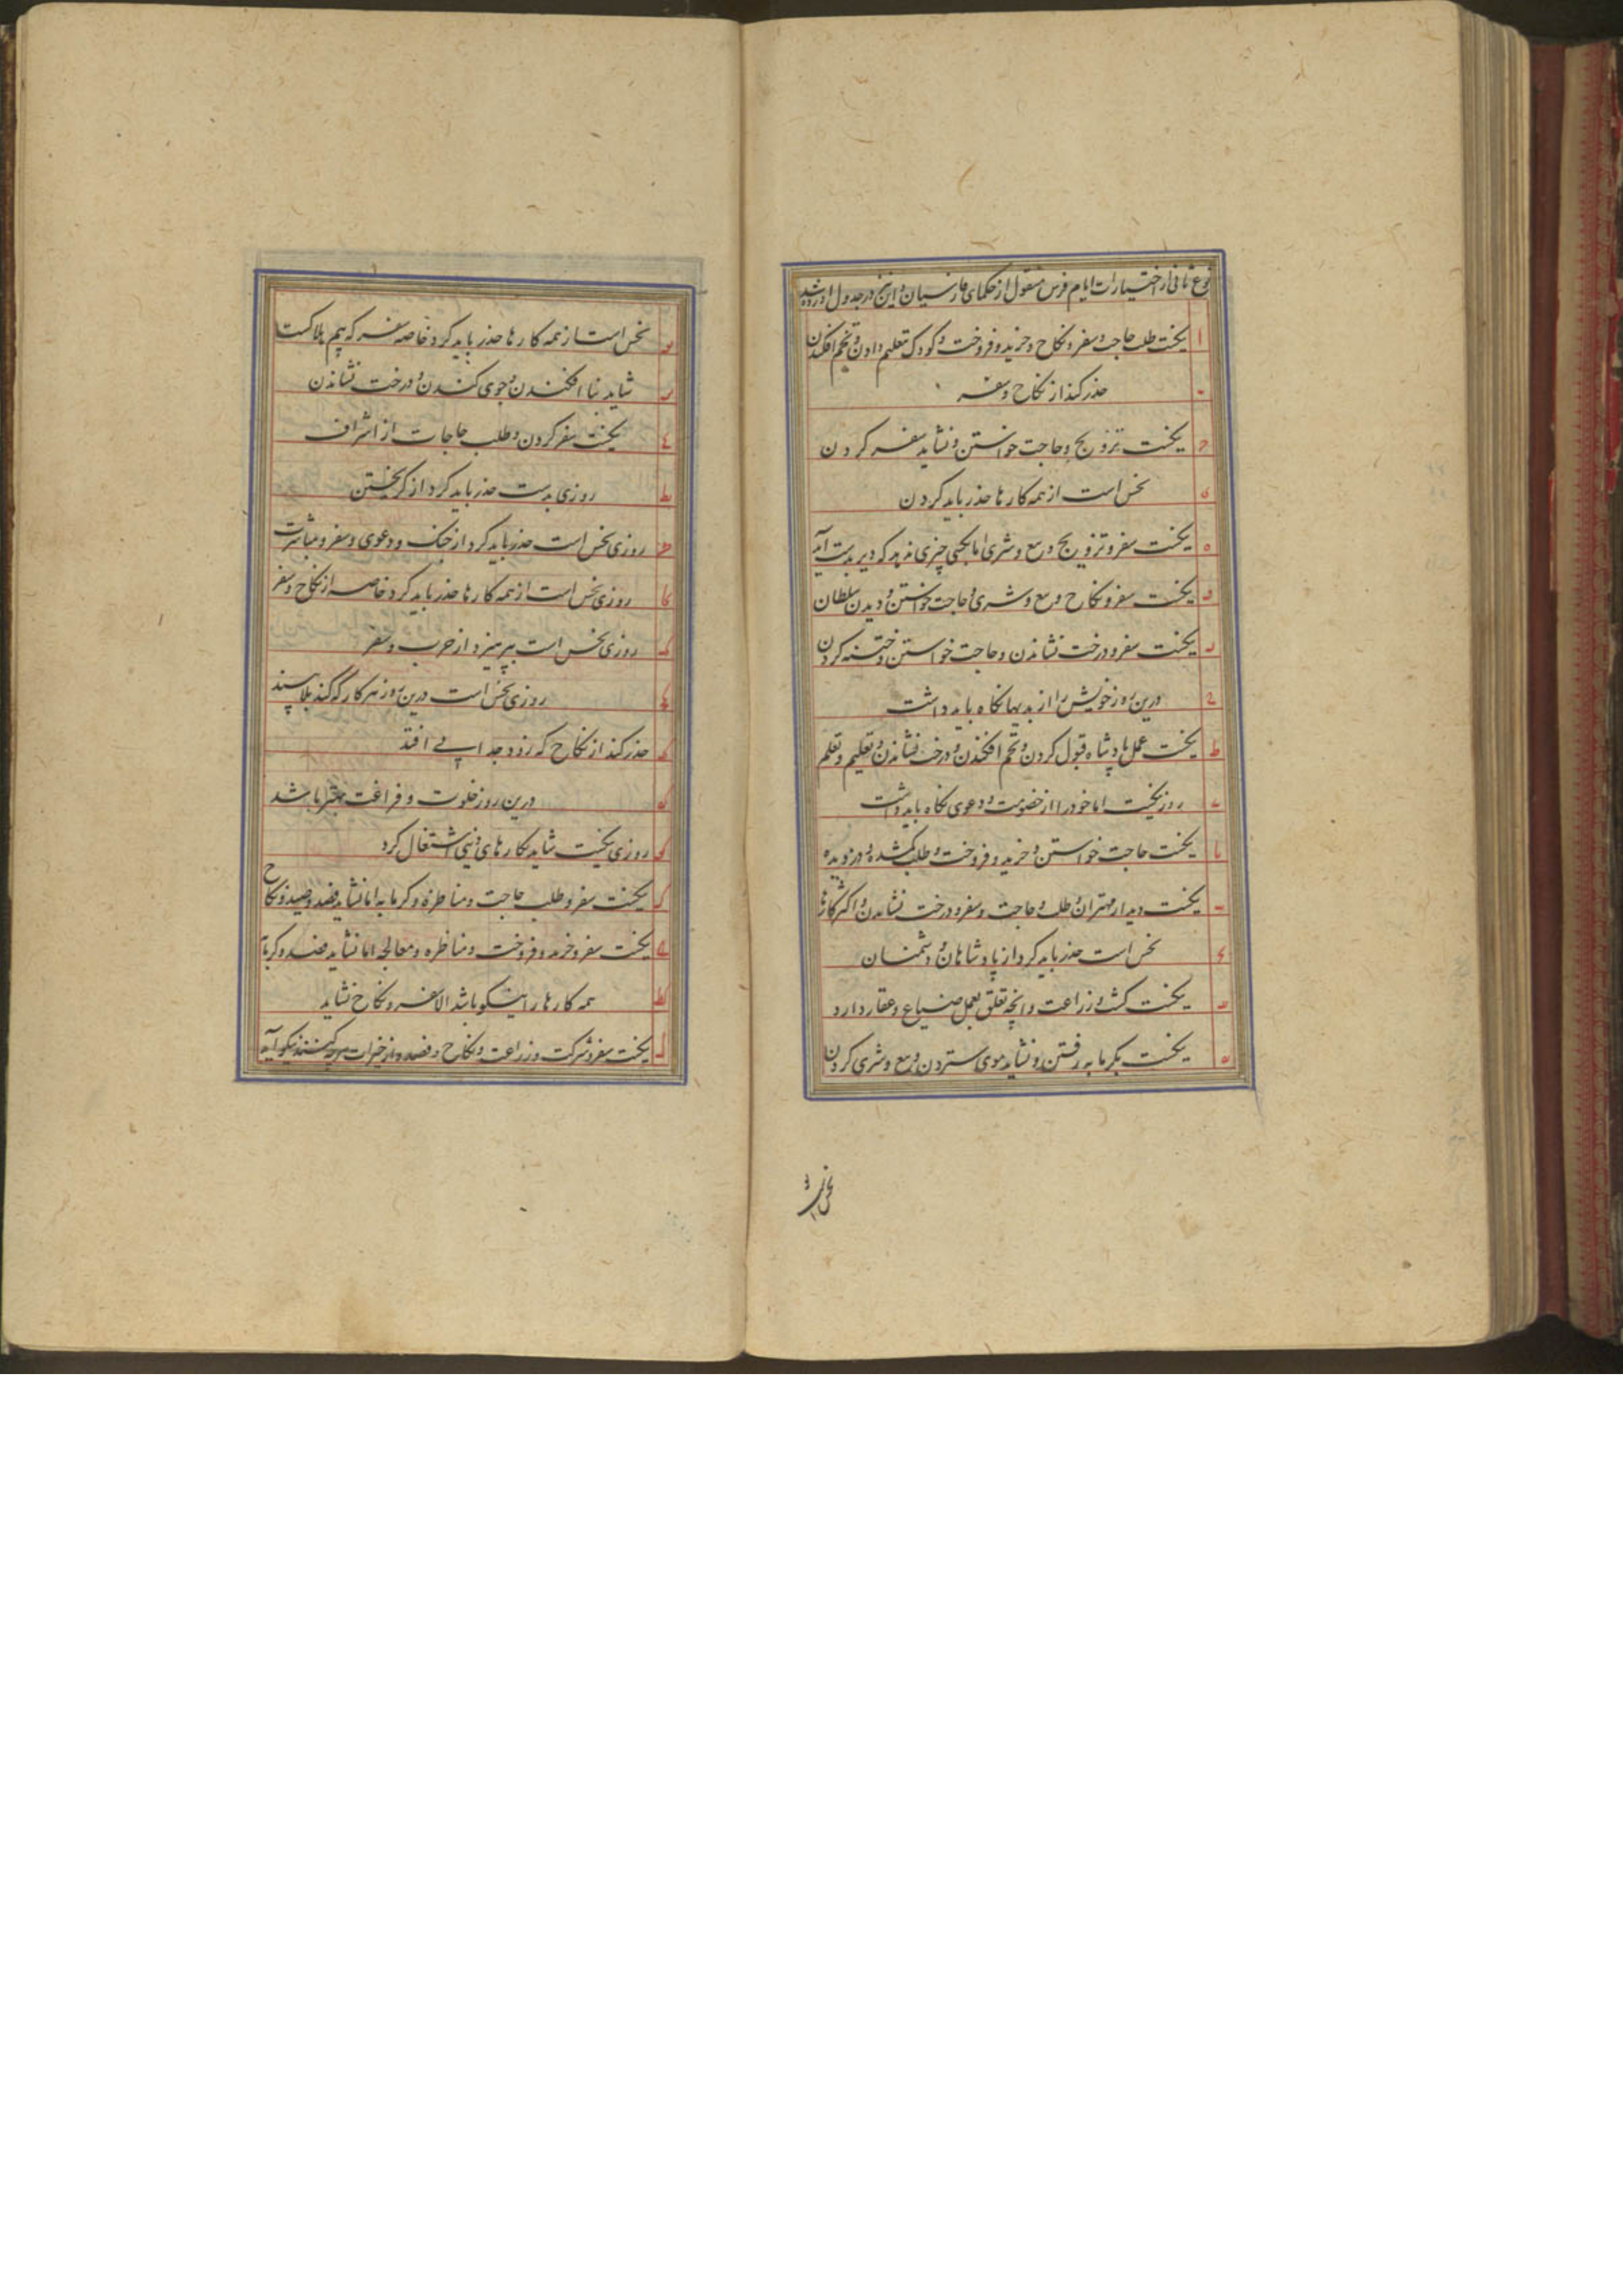 نوع ثانی از اختیارات ایام فرس منقول از حکمای فارسیان و این نیز در جدول آورده شد
ا نیکست طلب حاجت و سفر و نکاح و خرید و فروخت و کودک تعلیم دادن و تخم افکندن
ب حذر کند از نکاح و سفر
ج نیکست تزویج و حاجت خواستن و نشاید سفر کردن
د نحس است از همه کارها حذر باید کردن
ه نیکست سفر و تزویج و بیع و شری اما بکسی چیزی ندهد که دیر بدست آید
و نیکست سفر و نکاح و بیع و شری و حاجت خواستن و دیدن سلطان
ز نیکست سفر و درخت نشاندن و حاجت خواستن و ختنه کردن
ح درین روز خویش را از بدیها نکاه باید داشت
ط نیکست عمل پادشاه قبول کردن و تخم افکندن و درخت نشاندن و تعلیم و تعلم
ی روز نیکست اما خود را از خصومت و دعوی نکاه باید داشت
یا نیکست حاجت خواستن و خرید و فروخت و طلب کمشده و دزدیده
یب نیکست دیدار مهتران و طلب حاجت و سفر و درخت نشاندن و اکثر کارها
یج نحس است حذر باید کرد از پادشاهان و دشمنان
ید نیکست کشت و زراعت و انچه تعلق بعمل ضیاع و عقار دارد
یه نیکست بکرمابه رفتن و نشاید موی ستردن و بیع و شری کردن
نحس است
یو نحس است از همه کارها حذر باید کرد خاصه سفر که بیم هلاکست
یز شاید بنا افکندن و جوی کندن و درخت نشاندن
یح نیکست سفر کردن و طلب حاجات از اشراف
یط روزی بدست حذر باید کرد از کریختن
ک روزی نحس است حذر باید کرد از جنک و دعوی و سفر و مباشرت
کا روزی نحس است از همه کارها حذر باید کرد خاصه از نکاح و سفر
کب روزی نحس است بپرهیزد از حرب و سفر
کج روزی نحس است درین روز هر کار که کند بلا بیند
کد حذر کند از نکاح که زود جدایی افتد
که درین روز خلوت و فراغت بهتر باشد
کو روزی نیکست شاید بکارهای دینی اشتغال کرد
کز نیکست سفر و طلب حاجت و مناظره و کرمابه اما نشاید فصد و صید و نکاح
کح نیکست سفر و خرید و فروخت و مناظره و معالجه اما نشاید فصد و کرمابه
کط همه کارها را نیکو باشد الا سفر و نکاح نشاید
ل نیکست سفر و شرکت و زراعت و نکاح و فصد و از خیرات هرچه کنند نیکو آید